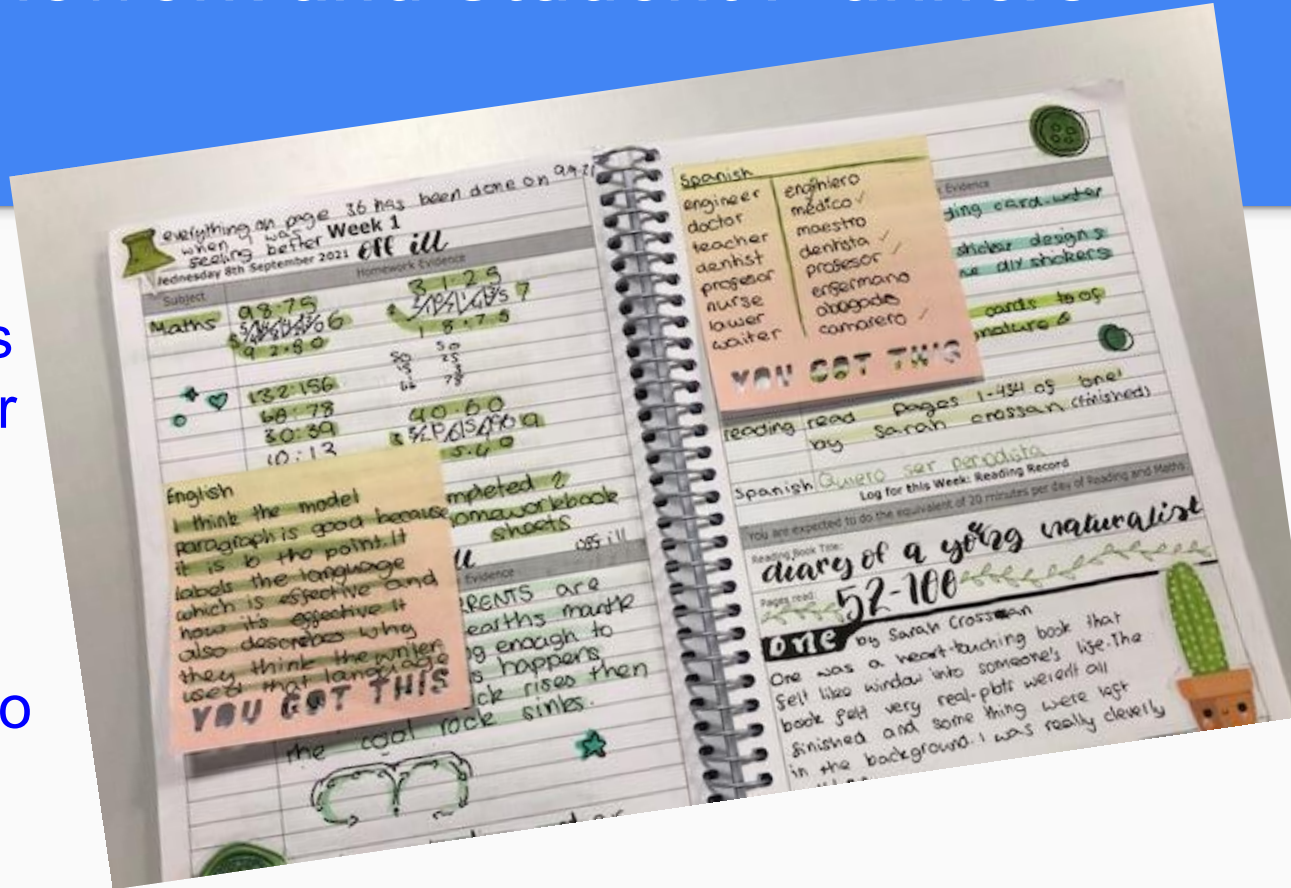 Student Planners
s
r
o
everything on page 36 has been done on 9.9.21
when I was
feeling better Week 1
Wednesday 8th September 2021 off ill
Subject Homework Evidence
Maths
98.75
6
92.50
31.25
7
18.75
50
25
75
132:156
66:78
30:39
10:13
90.60
9
5.40
English
I think the model
paragraph is good because
it is to the point. It
labels the language
which is effective and
how it's effective It
also describes why
they think the writer
used that language
YOU GOT THIS
mpleted 2
omeworkbook
sheets
off ill
Evidence
RRENTS are
earths mantle
g enough to
s happens
ck rises then
the cool rock sinks.
Spanish
engineer enginiero
doctor médico ✓
teacher maestro
dentist dentista ✓
profesor profesor ✓
nurse enfermano
lawer abogado
waiter camarero ✓
YOU GOT THIS
Evidence
ding card-water
sticker designs
diy stickers
cards to of
nature 6
reading read pages 1-434 of 'one'
by sarah crossan (finished)
Spanish Quiero ser periodista
Log for this Week: Reading Record
You are expected to do the equivalent of 20 minutes per day of Reading and Maths
Reading Book Title:
diary of a young naturalist
Pages read: 52-100
one by Sarah Crossan
One was a heart-tuching book that
felt like window into someone's life. The
book felt very real-plots weren't all
finished and some thing were left
in the background. I was really clevelly